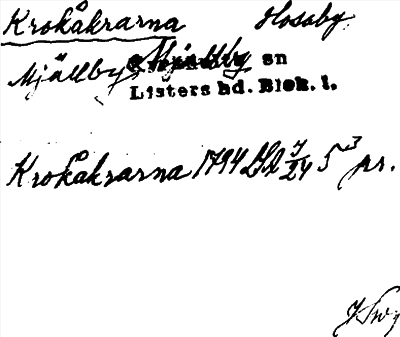 Krokåkrarna Hosaby
Mjällby sn
Listers hd. Blek. l.
Krokåkrarna 1794 7/24 53 pr.